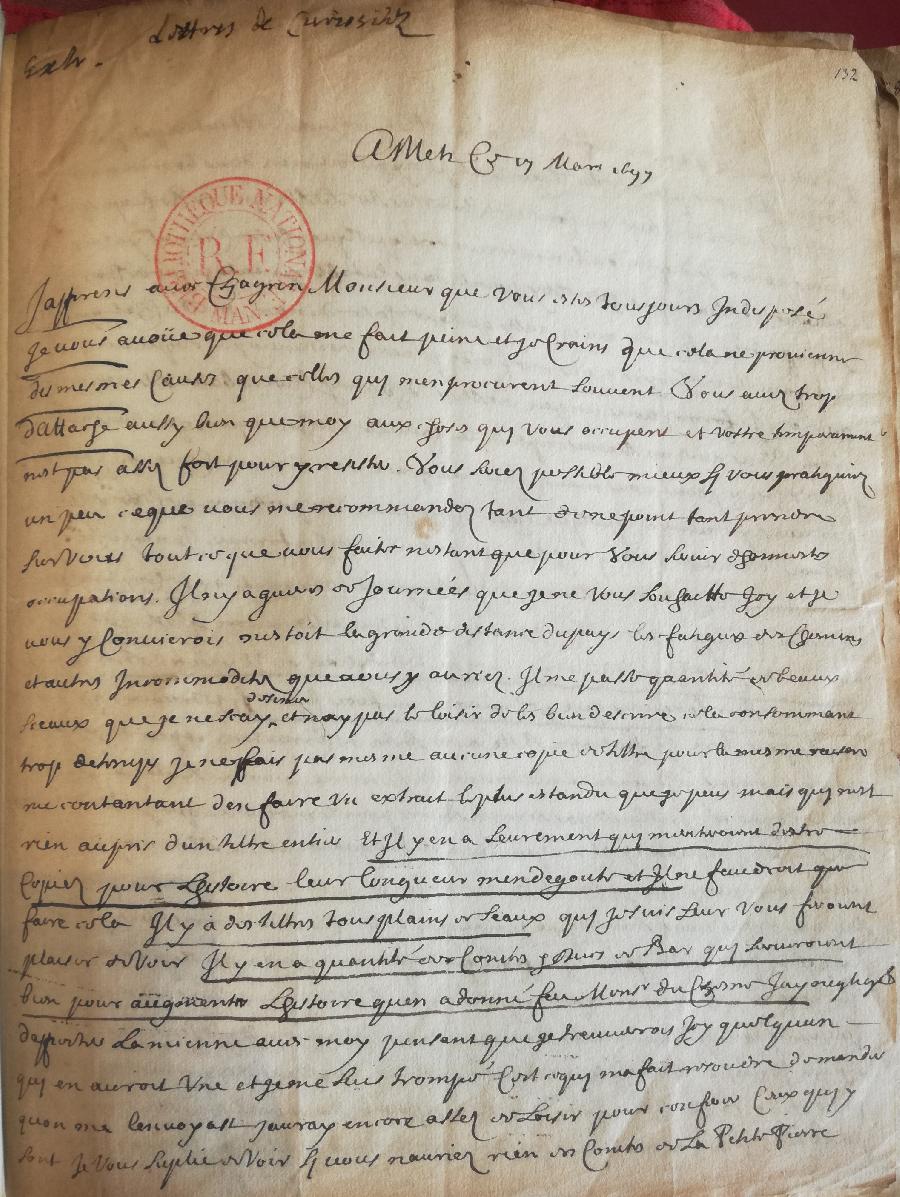 Lettres de Curiosité
Extr.
132
A Metz Ce 17 Mars 1697
BIBLIOTHEQUE NATIONALE
R.F.
MAN.
Japprens avec Chagrin Monsieur que vous estes tousjours Indisposé
Je vous avoüe que cela me fait peine et je Crains que cela ne provienne
des mesmes Causes que celles qui men procurent souvent Vous avez trop
dattache aussy bien que moy aux choses qui vous occupent et vostre temperament
nest pas assez fort pour y resister. Vous seriez possible mieux sy vous pratiquiez
un peu ce que vous me recommandez tant de ne point tant prendre
sur vous tout ce que vous faite nestant que pour Vous servir dhonnestes
occupations. Il ny a guere de Journées que je ne vous souhaitte Icy et je
vous y Convierois nestoit la grande distance du pays les fatigues des Chemins
et autres Incommoditez que vous y auriez. Il me passe quantité de beaux
desiner
sceaux que je ne scay et nay pas le loisir de les bien descrire cela consommant
trop de temps je ne fais pas mesme aucune copie de tiltre pour la mesme raison
me contantant den faire un extrait le plus estandu que je peus mais qui nest
rien aupris dun tiltre entier Et Il y en a seurement qui meriteroient destre
Copiez pour Lhistoire leur longueur men degoute et Il ne faudroit que
faire cela Il y a des tiltres tous plains de Seaux qui je suis seur vous feroient
plaisir de voir Il y en a quantité des Comtes et Ducs de Bar qui serviroient
bien pour augmenter Lhistoire quen a donné feu Monsr du Chesne Jay negligé
dapporter La mienne avec moy pensant que je trouverois Icy quelquun
qui en auroit une et je me suis trompé Cest ce qui ma fait resoudre demander
quon me lenvoyast jauray encore assez de Loisir pour conferer Ceux qui y
sont Je vous suplie de voir sy vous nauriez rien des Comtes de La Petite Pierre